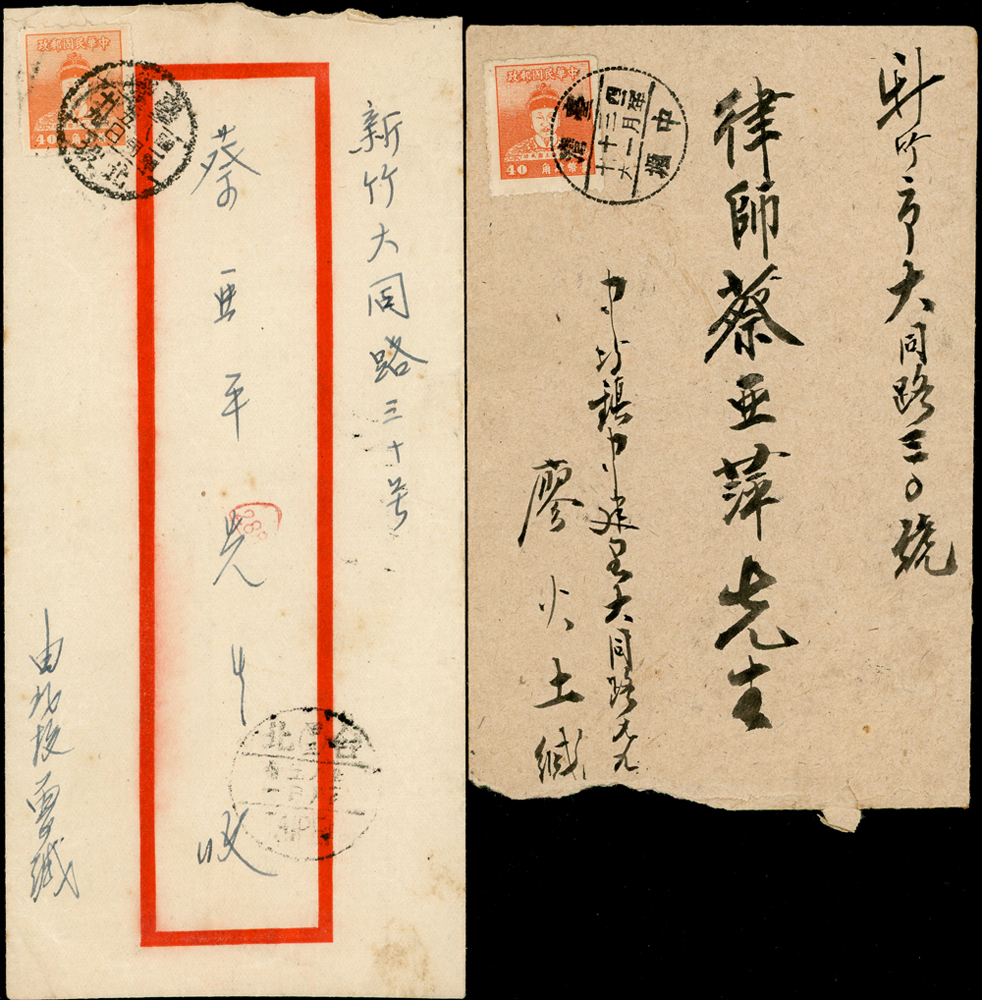 中華民國郵政
40
角
新竹大同路三十号
蔡亚平先生收
由北投
緘
台北
中華民國郵政
40
角
臺灣
中壢
新竹市大同路三〇號
律師蔡亜萍先生
中坜鎮中建里大同路
廖火土緘